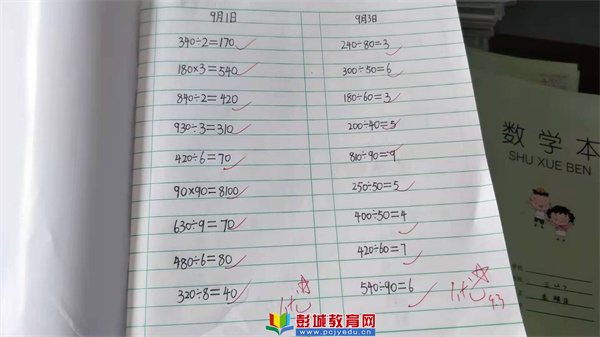 9月1日
340÷2=170
180×3=540
840÷2=420
930÷3=310
420÷6=70
90×90=8100
630÷9=70
480÷6=80
320÷8=40
9月3日
240÷80=3
300÷50=6
180÷60=3
200÷40=5
810÷90=9
250÷50=5
400÷50=4
420÷60=7
540÷90=6
优
优
9.3
数学本
SHU XUE BEN
彭城教育网
www.pcjyedu.com